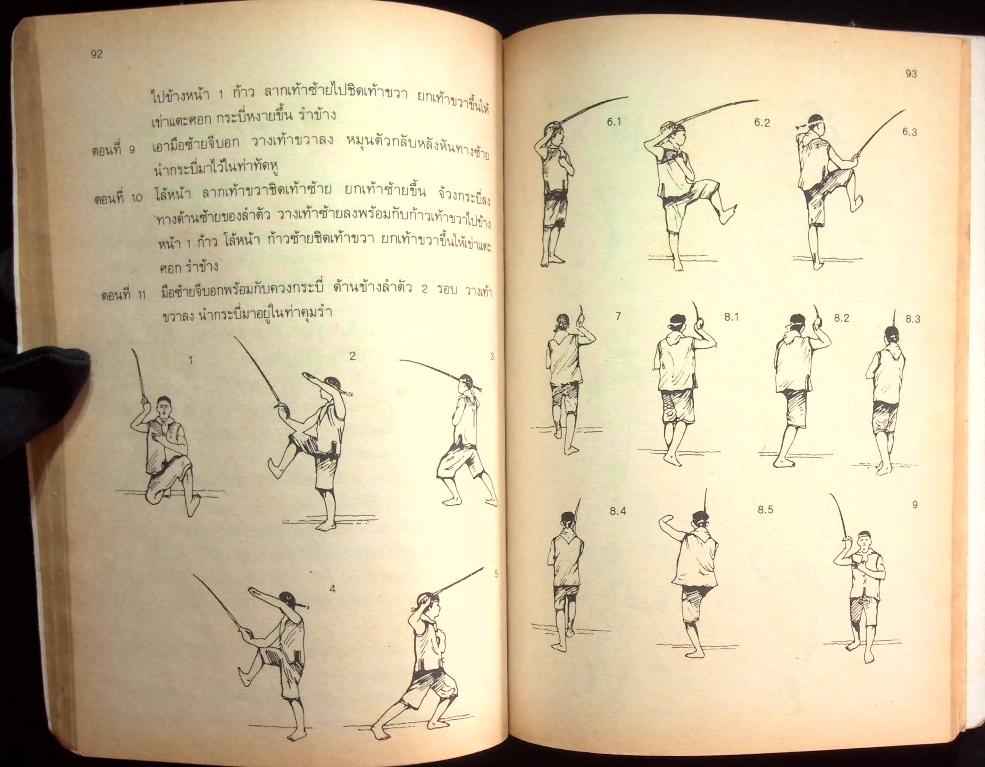 92
ไปข้างหน้า 1 ก้าว ลากเท้าซ้ายไปชิดเท้าขวา ยกเท้าขวาขึ้นให้
เข่าแตะศอก กระบี่หงายขึ้น รำข้าง
ตอนที่ 9 เอามือซ้ายจีบอก วางเท้าขวาลง หมุนตัวกลับหลังหันทางซ้าย
นำกระบี่มาไว้ในท่าทัดหู
ตอนที่ 10 โล้หน้า ลากเท้าขวาชิดเท้าซ้าย ยกเท้าซ้ายขึ้น จ้วงกระบี่ลง
ทางด้านซ้ายของลำตัว วางเท้าซ้ายลงพร้อมกับก้าวเท้าขวาไปข้าง
หน้า 1 ก้าว โล้หน้า ก้าวซ้ายชิดเท้าขวา ยกเท้าขวาขึ้นให้เข่าแตะ
ศอก รำข้าง
ตอนที่ 11 มือซ้ายจีบอกพร้อมกับควงกระบี่ ด้านข้างลำตัว 2 รอบ วางเท้า
ขวาลง นำกระบี่มาอยู่ในท่าคุมรำ
1
2
3
4
5
93
6.1
6.2
6.3
7
8.1
8.2
8.3
8.4
8.5
9